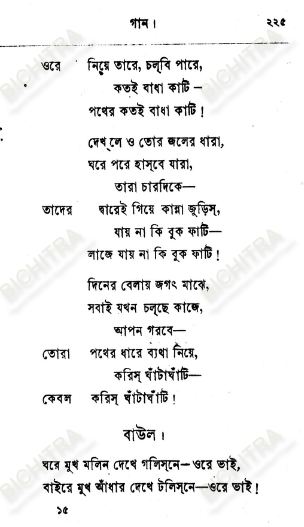 গান। ২২৫
ওরে নিয়ে তারে, চল্‌বি পারে,
কতই বাধা কাটি –
পথের কতই বাধা কাটি!
দেখ্‌লে ও তোর জলের ধারা,
ঘরে পরে হাস্‌বে যারা,
তারা চারদিকে—
তাদের দ্বারেই গিয়ে কান্না জুড়িস্‌,
যায় না কি বুক ফাটি—
লাজে যায় না কি বুক ফাটি!
দিনের বেলায় জগৎ মাঝে,
সবাই যখন চল্‌ছে কাজে,
আপন গরবে—
তোরা পথের ধারে ব্যথা নিয়ে,
করিস্‌ ঘাঁটাঘাঁটি—
কেবল করিস্‌ ঘাঁটাঘাঁটি!
বাউল।
ঘরে মুখ মলিন দেখে গলিস্‌নে—ওরে ভাই,
বাইরে মুখ আঁধার দেখে টলিস্‌নে—ওরে ভাই!
১৫
BICHITRA